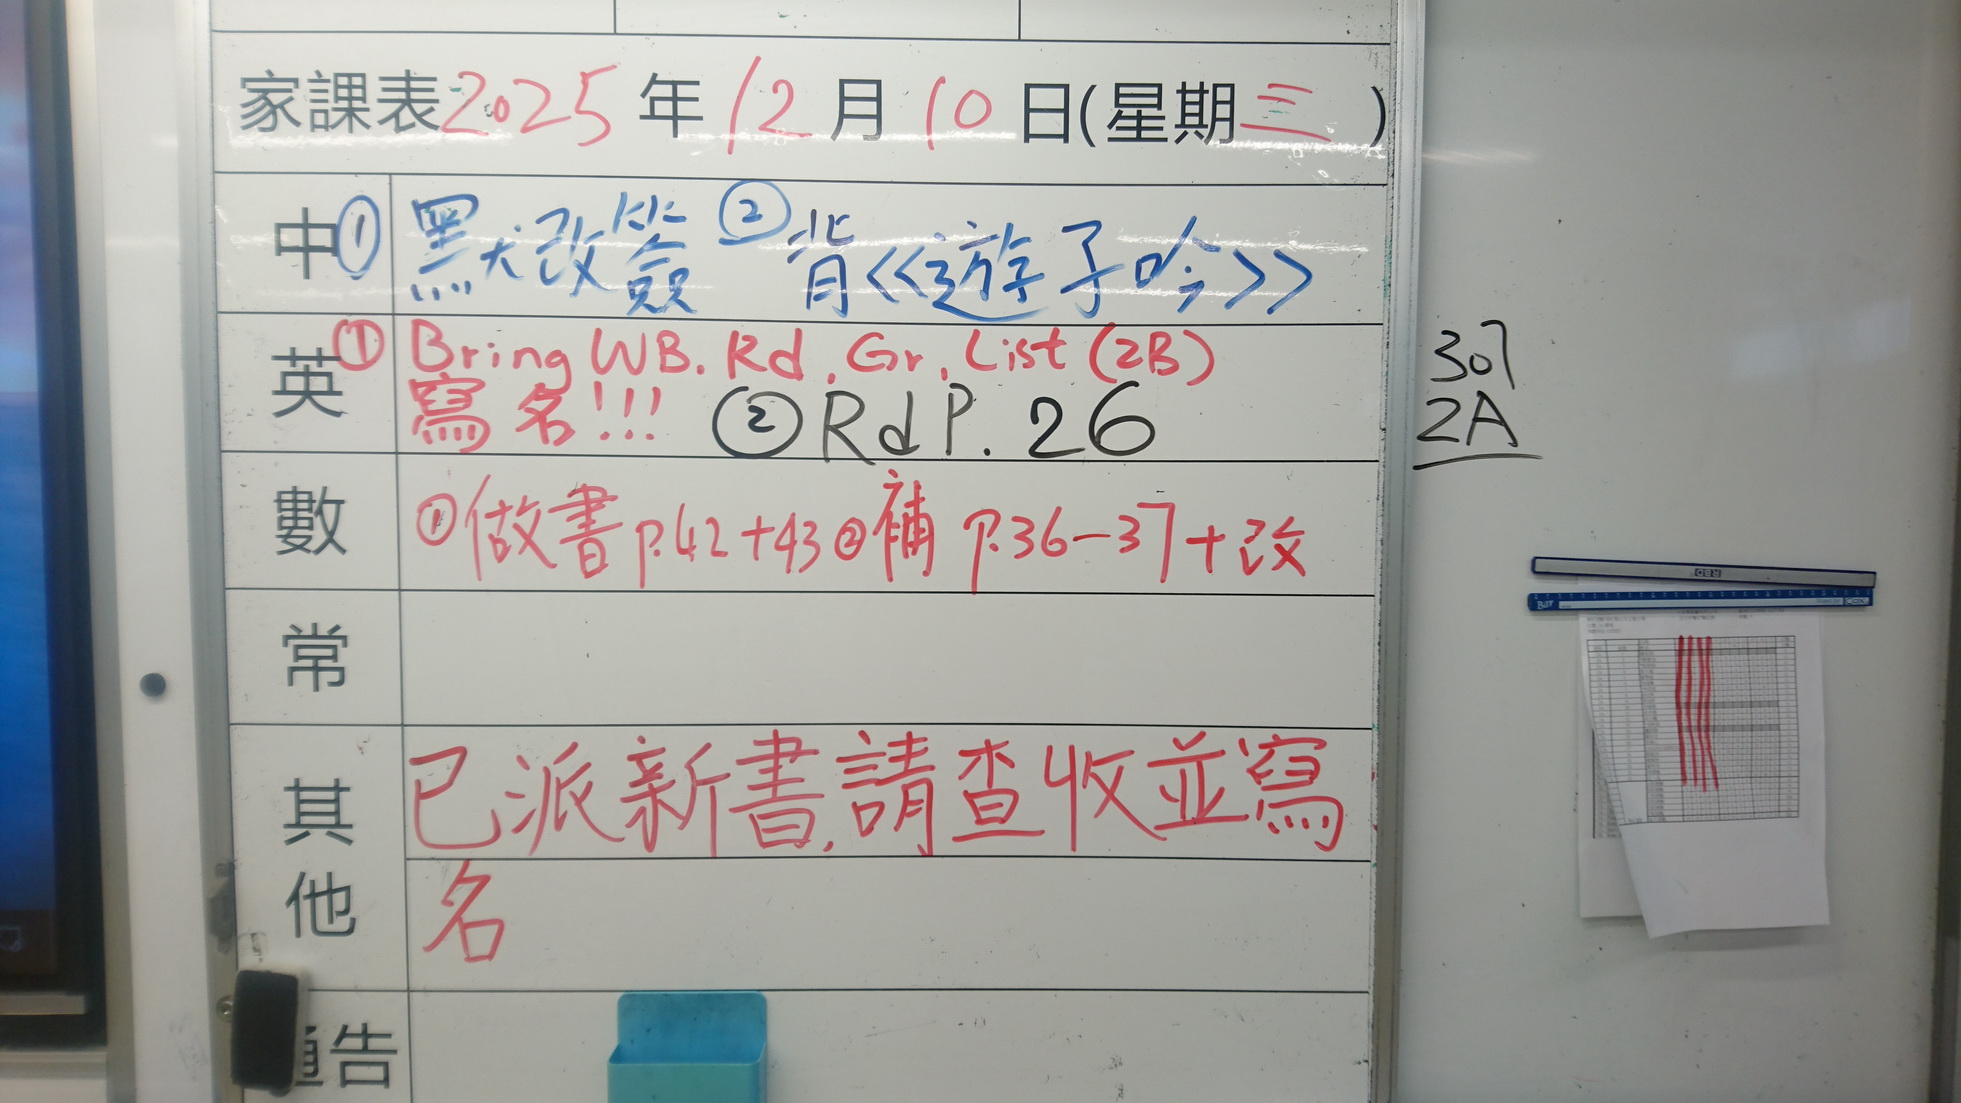 家課表2025年12月10日(星期三)
中 ①默改簽 ②背<<遊子吟>>
英 ①Bring WB. Rd. Gr. List (2B)
寫名!!! ②Rd P. 26
數 ①做書p.42+43②補 P.36-37+改
常
其他 已派新書,請查收並寫
名
通告
307
2A